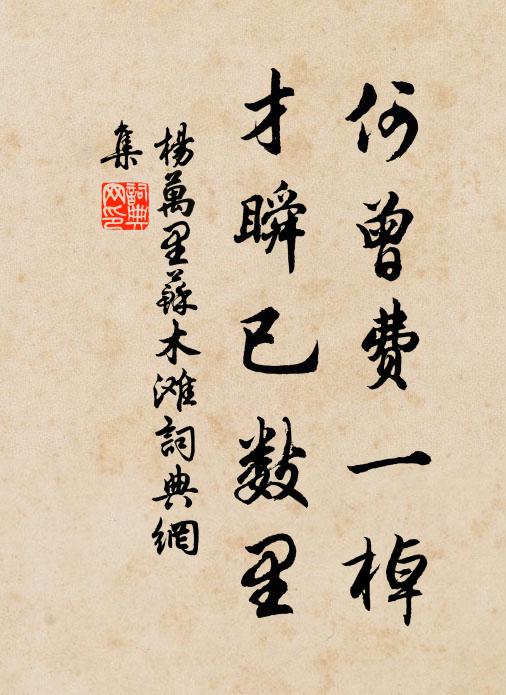 何曾費一棹
才瞬已数里
楊萬里蘇木滩詞典網
集
詞典網印